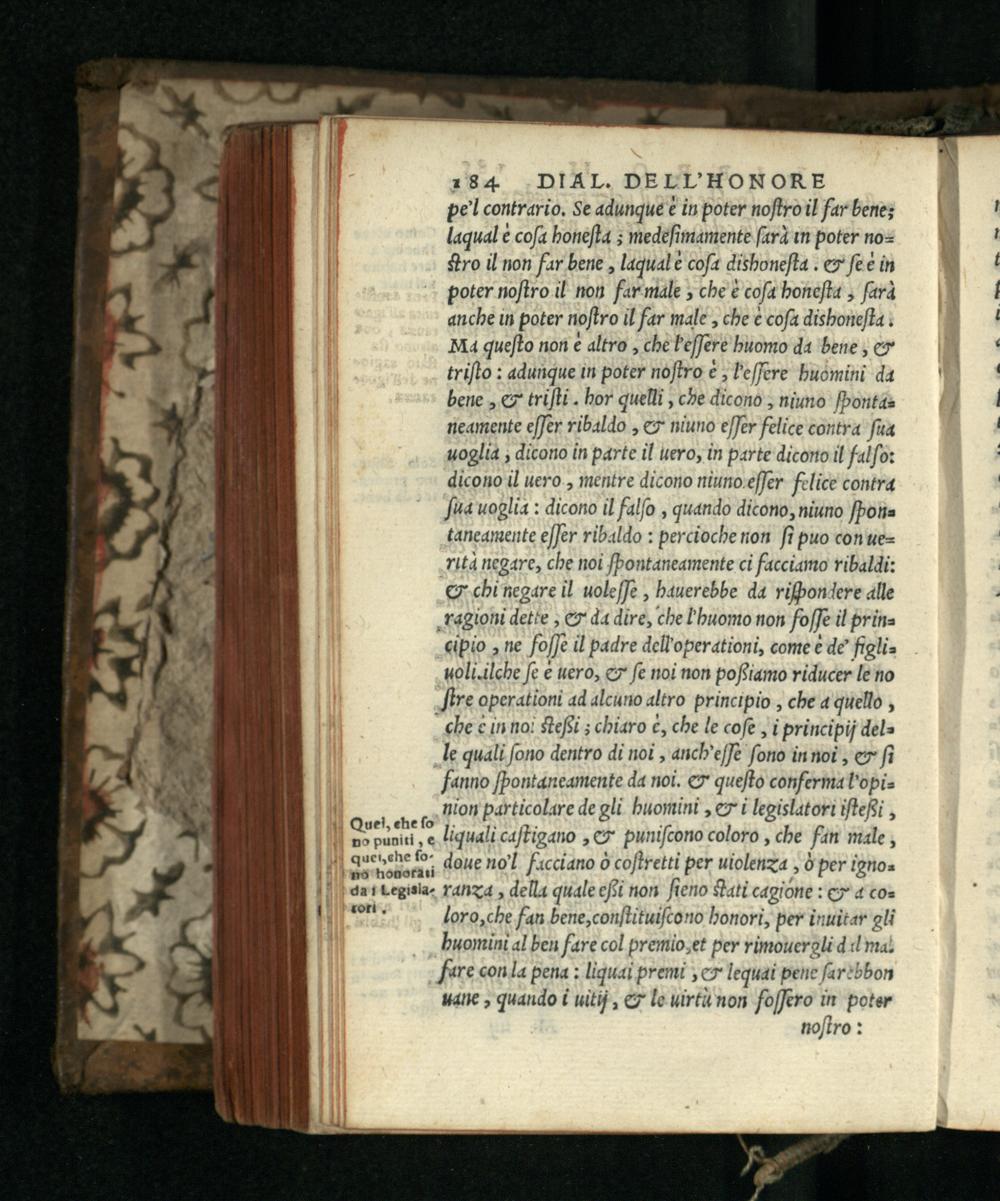 184 DIAL. DELL'HONORE
pe'l contrario. Se adunque è in poter noſtro il far bene;
laqual è coſa honeſta ; medeſimamente ſarà in poter no=
ſtro il non far bene , laqual è coſa dishoneſta . & ſe è in
poter noſtro il non far male , che è coſa honeſta , ſarà
anche in poter noſtro il far male , che è coſa dishoneſta .
Ma queſto non è altro , che l'eſſere huomo da bene , &
triſto : adunque in poter noſtro è , l'eſſere huomini da
bene , & triſti . hor quelli , che dicono , niuno ſponta=
neamente eſſer ribaldo , & niuno eſſer felice contra ſua
uoglia , dicono in parte il uero, in parte dicono il falſo:
dicono il uero , mentre dicono niuno eſſer felice contra
ſua uoglia : dicono il falſo , quando dicono, niuno ſpon=
taneamente eſſer ribaldo : percioche non ſi puo con ue=
rità negare, che noi ſpontaneamente ci facciamo ribaldi:
& chi negare il uoleſſe , hauerebbe da riſpondere alle
ragioni dette , & da dire, che l'huomo non foſſe il prin=
cipio , ne foſſe il padre dell'operationi, come è de' figli=
uoli.ilche ſe è uero, & ſe noi non poßiamo riducer le no
ſtre operationi ad alcuno altro principio , che a quello ,
che è in noi ſteßi ; chiaro è, che le coſe , i principij del=
le quali ſono dentro di noi , anch'eſſe ſono in noi , & ſi
fanno ſpontaneamente da noi. & queſto conferma l'opi=
nion particolare de gli huomini , & i legislatori iſteßi ,
liquali caſtigano , & puniſcono coloro , che fan male ,
doue no'l facciano ò coſtretti per uiolenza , ò per igno=
ranza , della quale eßi non ſieno ſtati cagione : & a co=
loro,che fan bene,conſtituiſcono honori, per inuitar gli
huomini al ben fare col premio,et per rimouergli dal mal
fare con la pena : liquai premi , & lequai pene ſarebbon
uane , quando i uitij , & le uirtù non foſſero in poter
noſtro :
Quei, che ſo
no puniti , e
quei,che ſo-
no honorati
da i Legisla-
tori .